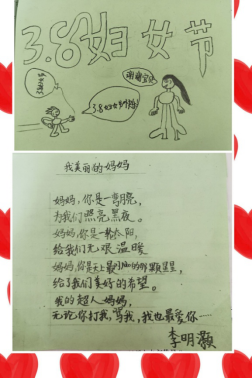 3.8妇女节
3.8妇女节快乐
我美丽的妈妈
妈妈,你是一弯月亮,
为我们照亮黑夜。
妈妈,你是一轮太阳,
给我们无限温暖
妈妈,你是天上最对灿的那颗星星,
给了我们美好的希望。
我的超人妈妈,
无论你打我,骂我,我也最爱你……
李明灏